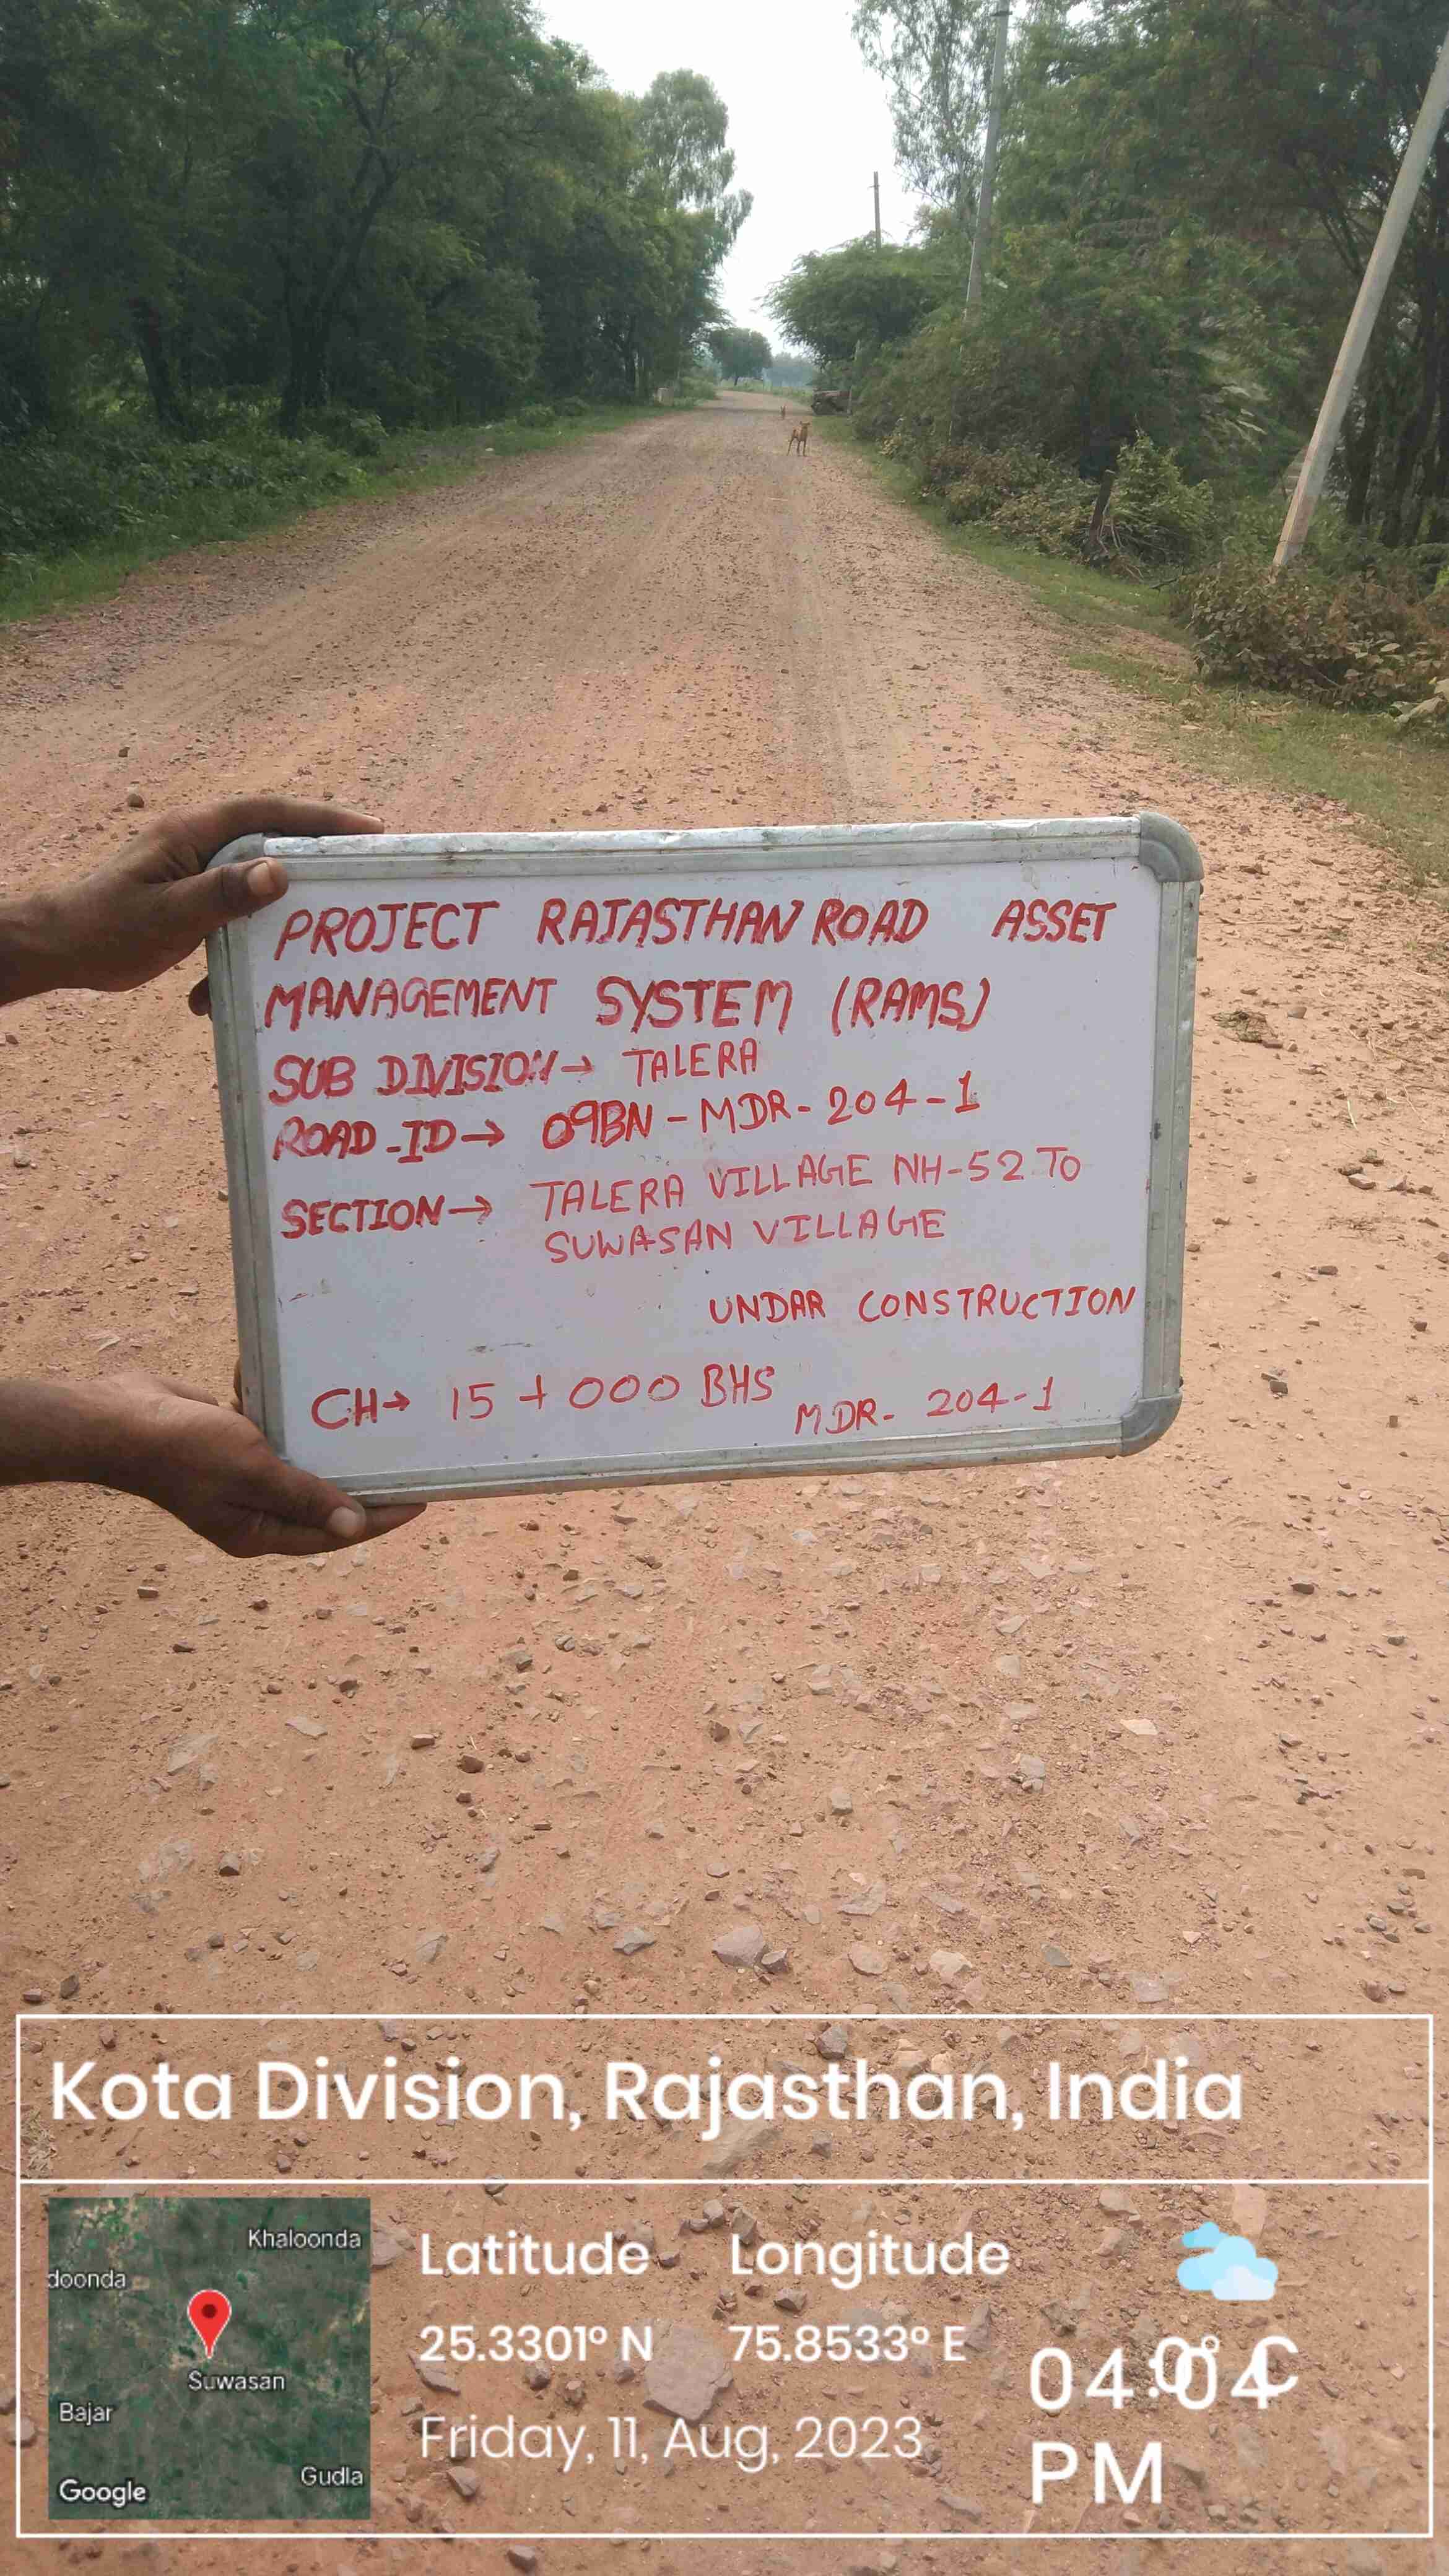 PROJECT RAJASTHAN ROAD ASSET
MANAGEMENT SYSTEM (RAMS)
SUB DIVISION→ TALERA
ROAD-ID→ 09BN-MDR-204-1
SECTION→ TALERA VILLAGE NH-52 TO
SUWASAN VILLAGE
UNDAR CONSTRUCTION
CH→ 15+000 BHS
MDR- 204-1
Kota Division, Rajasthan, India
Khaloonda
doonda
Suwasan
Bajar
Gudla
Google
Latitude Longitude
25.3301° N 75.8533° E
Friday, 11, Aug, 2023
04:04
PM